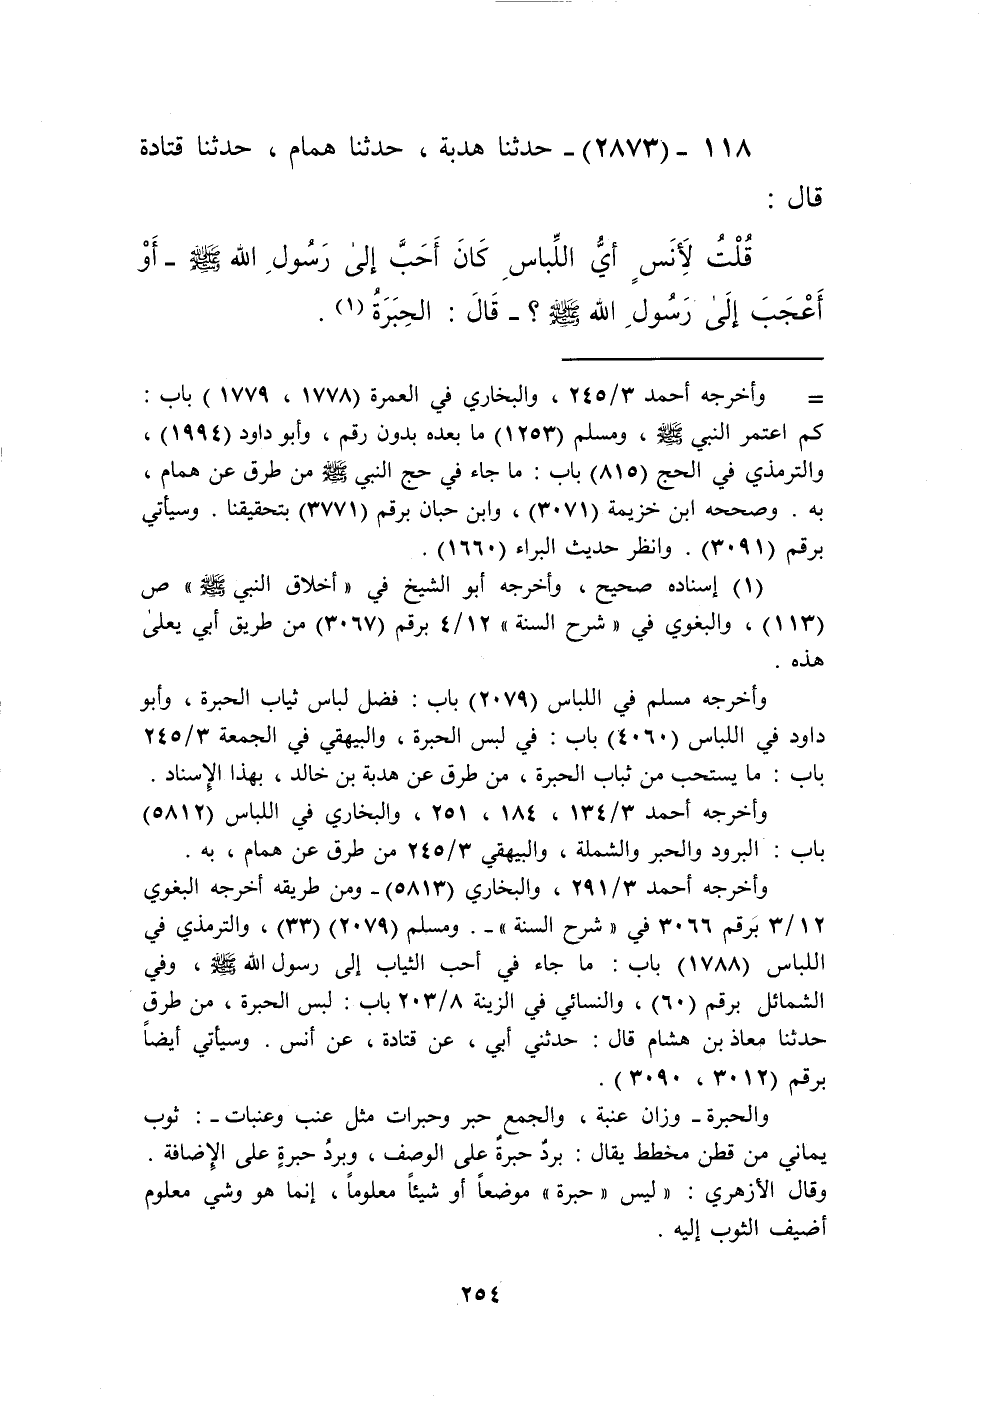 ١١٨ - (٢٨٧٣) - حدثنا هدبة ، حدثنا همام ، حدثنا قتادة
قال :
قُلْتُ لِأَنَسٍ أيُّ اللِّباسِ كَانَ أَحَبَّ إلىٰ رَسُولِ الله ﷺ - أَوْ
أَعْجَبَ إلَىٰ رَسُولِ الله ﷺ ؟ - قَالَ : الحِبَرَةُ (١) .
= وأخرجه أحمد ٢٤٥/٣ ، والبخاري في العمرة (١٧٧٨ ، ١٧٧٩ ) باب :
كم اعتمر النبي ﷺ ، ومسلم (١٢٥٣) ما بعده بدون رقم ، وأبو داود (١٩٩٤) ،
والترمذي في الحج (٨١٥) باب : ما جاء في حج النبي ﷺ من طرق عن همام ،
به . وصححه ابن خزيمة (٣٠٧١) ، وابن حبان برقم (٣٧٧١) بتحقيقنا . وسيأتي
برقم (٣٠٩١) . وانظر حديث البراء (١٦٦٠) .
(١) إسناده صحيح ، وأخرجه أبو الشيخ في « أخلاق النبي ﷺ » ص
(١١٣) ، والبغوي في « شرح السنة » ٤/١٢ برقم (٣٠٦٧) من طريق أبي يعلىٰ
هذه .
وأخرجه مسلم في اللباس (٢٠٧٩) باب : فضل لباس ثياب الحبرة ، وأبو
داود في اللباس (٤٠٦٠) باب : في لبس الحبرة ، والبيهقي في الجمعة ٢٤٥/٣
باب : ما يستحب من ثباب الحبرة ، من طرق عن هدبة بن خالد ، بهذا الإِسناد .
وأخرجه أحمد ١٣٤/٣ ، ١٨٤ ، ٢٥١ ، والبخاري في اللباس (٥٨١٢)
باب : البرود والحبر والشملة ، والبيهقي ٢٤٥/٣ من طرق عن همام ، به .
وأخرجه أحمد ٢٩١/٣ ، والبخاري (٥٨١٣) - ومن طريقه أخرجه البغوي
٣/١٢ بَرقم ٣٠٦٦ في « شرح السنة » - . ومسلم (٢٠٧٩) (٣٣) ، والترمذي في
اللباس (١٧٨٨) باب : ما جاء في أحب الثياب إلى رسول الله ﷺ ، وفي
الشمائل برقم (٦٠) ، والنسائي في الزينة ٢٠٣/٨ باب : لبس الحبرة ، من طرق
حدثنا معاذ بن هشام قال : حدثني أبي ، عن قتادة ، عن أنس . وسيأتي أيضاً
برقم (٣٠١٢ ، ٣٠٩٠ ) .
والحبرة - وزان عنبة ، والجمع حبر وحبرات مثل عنب وعنبات - : ثوب
يماني من قطن مخطط يقال : بردٌ حبرةٌ على الوصف ، وبردُ حبرةٍ على الإِضافة .
وقال الأزهري : « ليس « حبرة » موضعاً أو شيئاً معلوماً ، إنما هو وشي معلوم
أضيف الثوب إليه .
٢٥٤